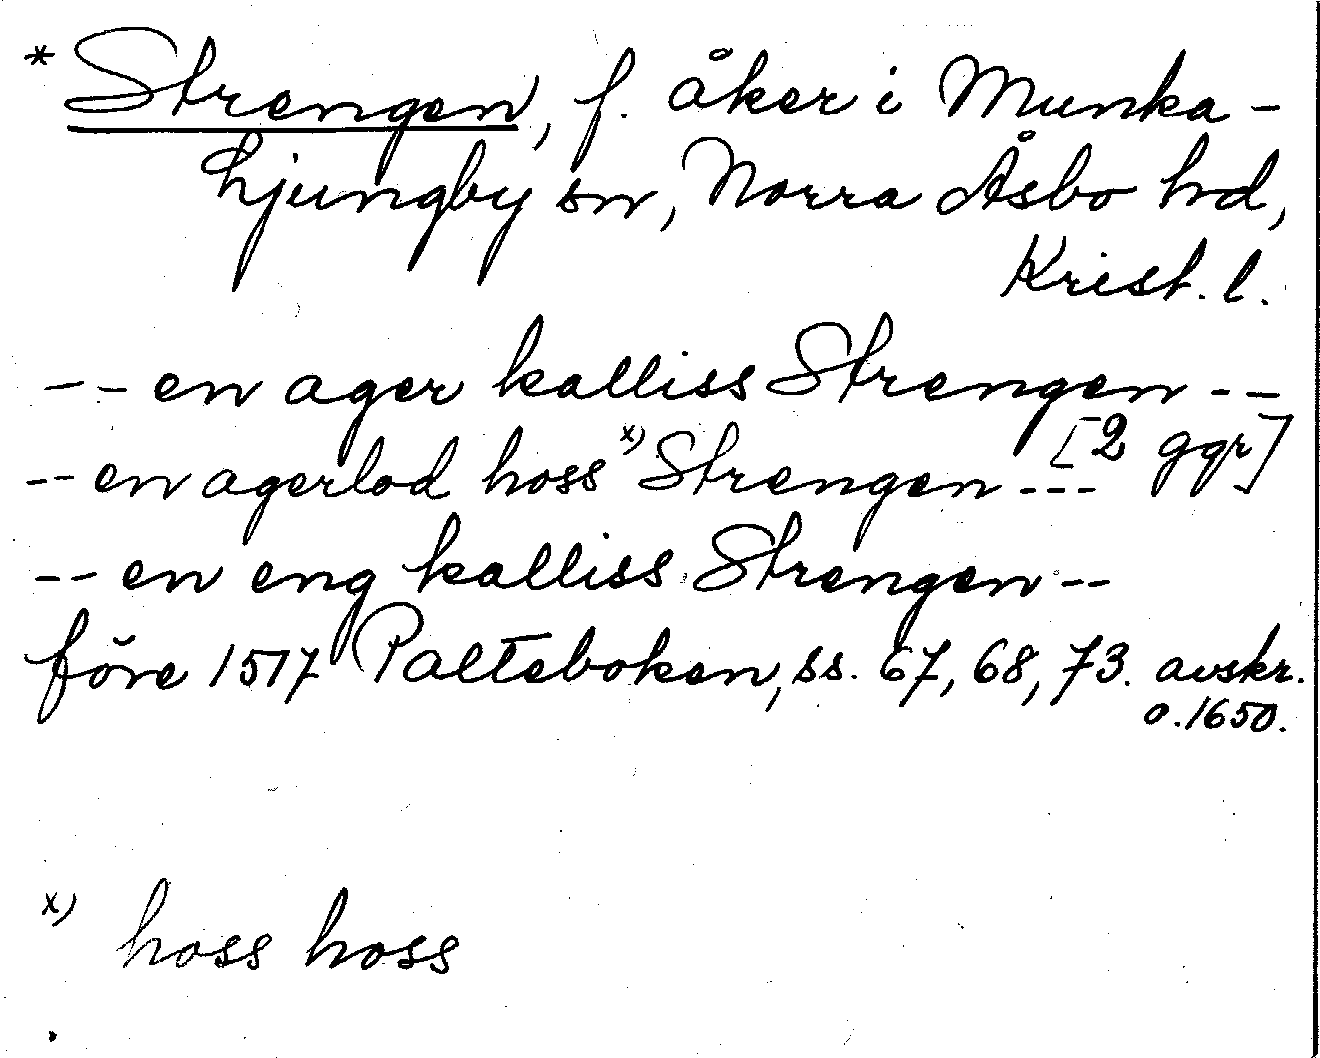 * Strengen, f. åker i Munka-
ljungby sn, Norra Åsbo hd,
Krist. l.
-- en ager kalliss Strengen --
[2 ggr]
-- en agerlod hoss x) Strengen ---
-- en eng kalliss Strengen --
före 1517 Palteboken, ss. 67, 68, 73. avskr.
o. 1650.
x) hoss hoss